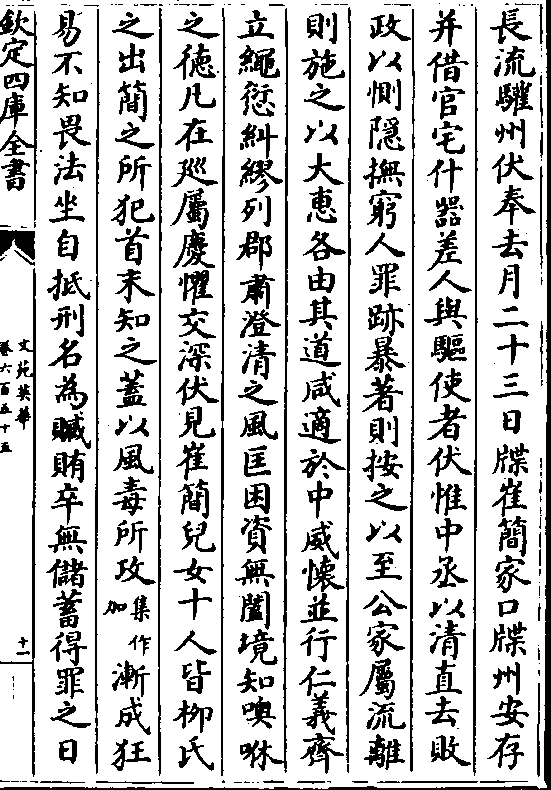 長流驩州伏奉去月二十三日牒崔簡家口牒州安存
并借官宅什器差人與驅使者伏惟中丞以清直去敗
政以惻隱撫窮人罪跡暴著則按之以至公家屬流離
則施之以大惠各由其道咸適於中威懷並行仁義齊
立繩愆糾繆列郡肅澄清之風匡困資無闔境知噢咻
之徳凡在廵屬慶懼交深伏見崔簡兒女十人皆栁氏
之出簡之所犯首末知之葢以風毒所攻集作加漸成狂
易不知畏法坐自抵刑名為贓賄卒無儲蓄得罪之日
欽定四庫全書
文苑英華
卷六百五十五
十一